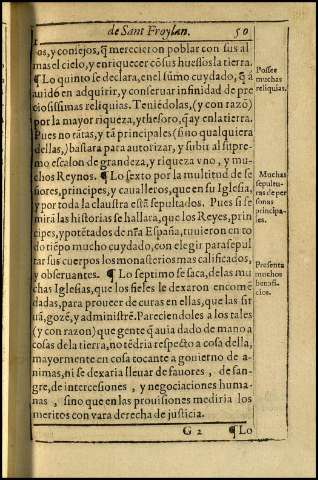 de Sant Froylan. 50
os, y consejos, q̃ merecieron poblar con sus al
mas el cielo, y enriquecer cõ sus huessos la tierra.
¶ Lo quinto se declara, en el sũmo cuydado, q̃ â
auido en adquirir, y conseruar infinidad de pre
ciosissimas reliquias. Teniẽdolas, (y con razõ)
por la mayor riqueza, y thesoro, q̃ ay en la tierra.
Pues no tãtas, y tã principales (sino qualquiera
dellas,) bastara para autorizar, y subir al supre
mo escalon de grandeza, y riqueza vno, y mu-
chos Reynos. ¶ Lo sexto por la multitud de se
ñores, principes, y caualleros, que en su Iglesia,
y por toda la claustra estã sepultados. Pues si se
mirã las historias se hallara, que los Reyes, prin
cipes, y potẽtados de nr̃a España, tuuieron en to
do tiẽpo mucho cuydado, con elegir para sepul
tar sus cuerpos los monasterios mas calificados,
y obseruantes. ¶ Lo septimo se saca, de las mu
chas Iglesias, que los fieles le dexaron encomẽ
dadas, para proueer de curas en ellas, que las sir
uã, gozẽ, y administrẽ. Pareciendoles a los tales
(y con razon) que gente q̃ auia dado de mano a
cosas de la tierra, no tẽdria respecto a cosa della,
mayormente en cosa tocante a gouierno de a-
nimas, ni se dexaria lleuar de fauores, de san-
gre, de intercesiones, y negociaciones huma-
nas, sino que en las prouisiones mediria los
meritos con vara derecha de justicia.
G 2 ¶ Lo
Possee
muchas
reliquias.
Muchas
sepultu-
ras de per
sonas
principa-
les.
Presenta
muchos
benefi-
cios.